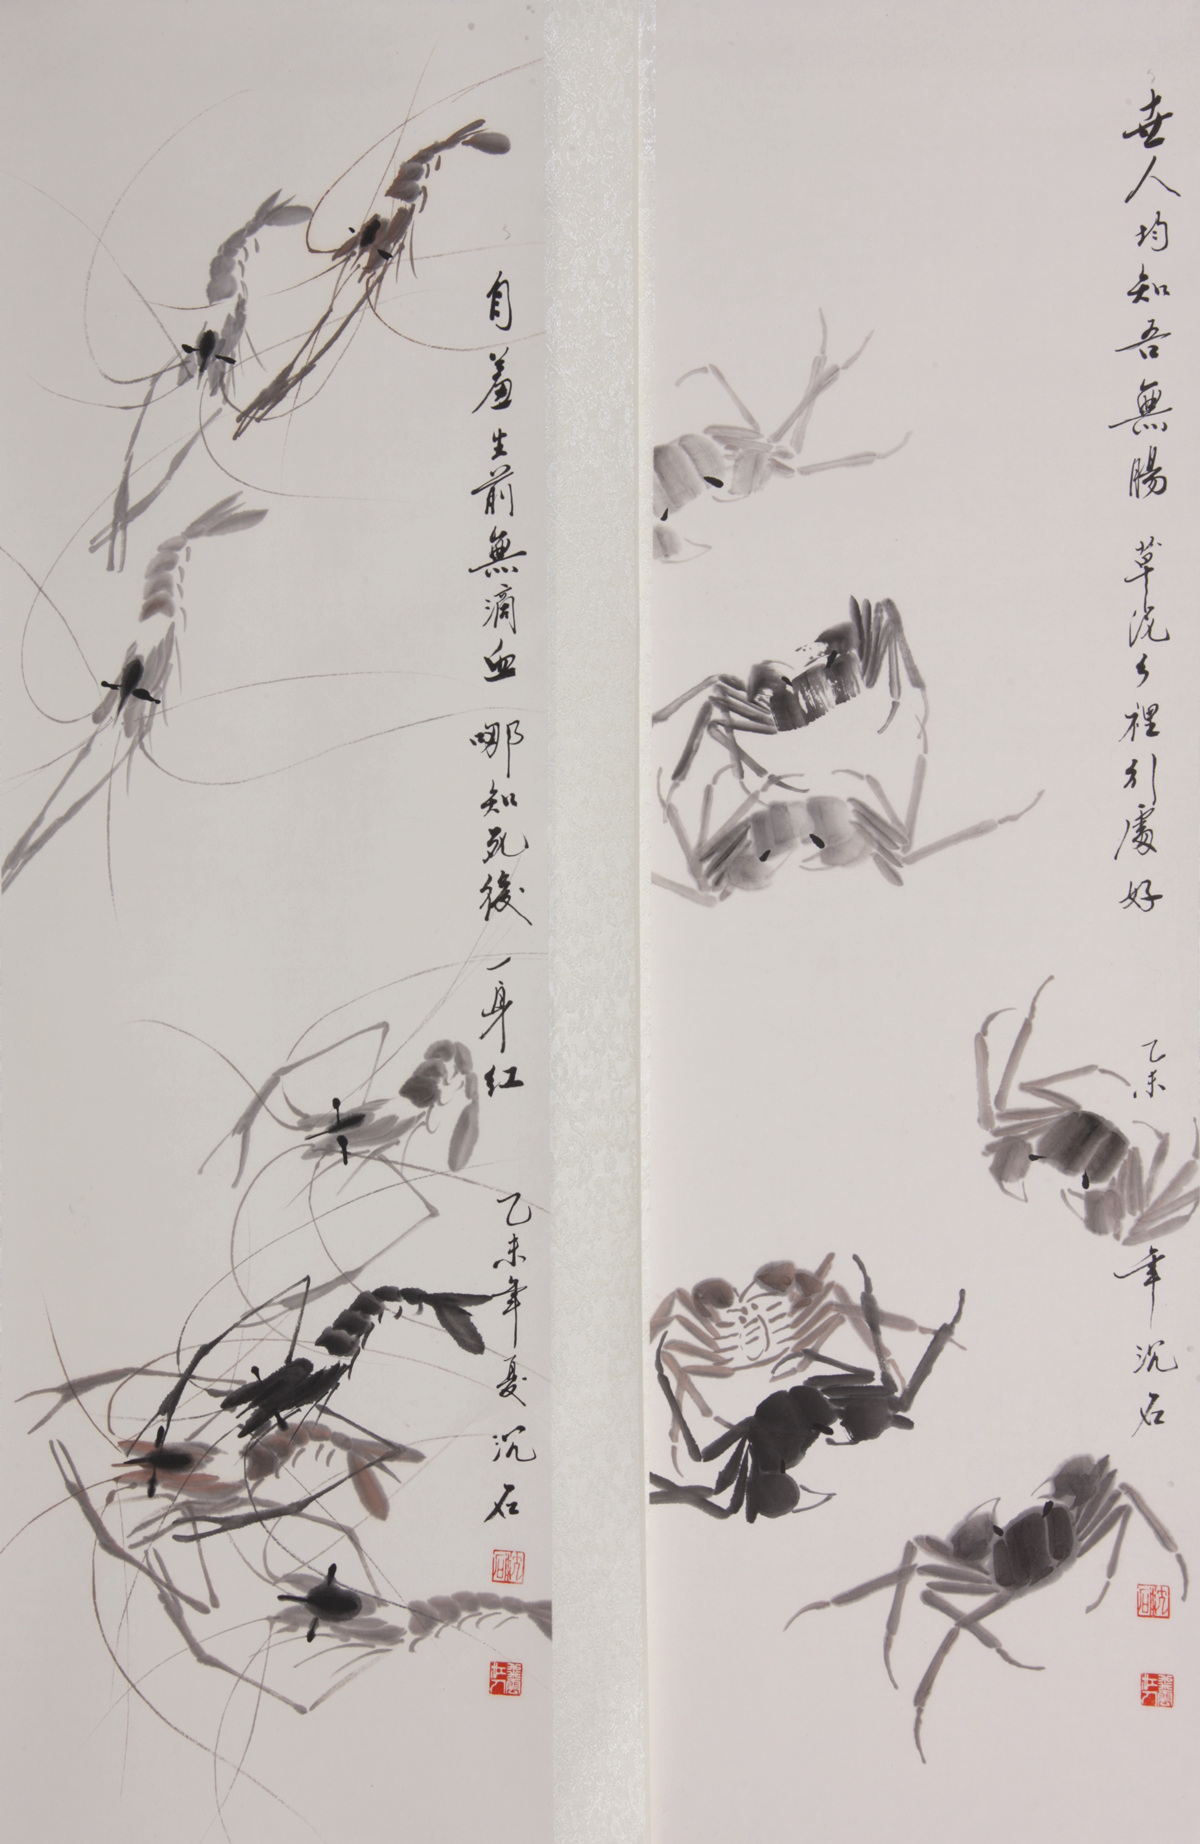 世人均知吾無腸 草泥乡裡引處好
乙未年 沉石
自羞生前無滴血 哪知死後一身红
乙未年夏 沉石